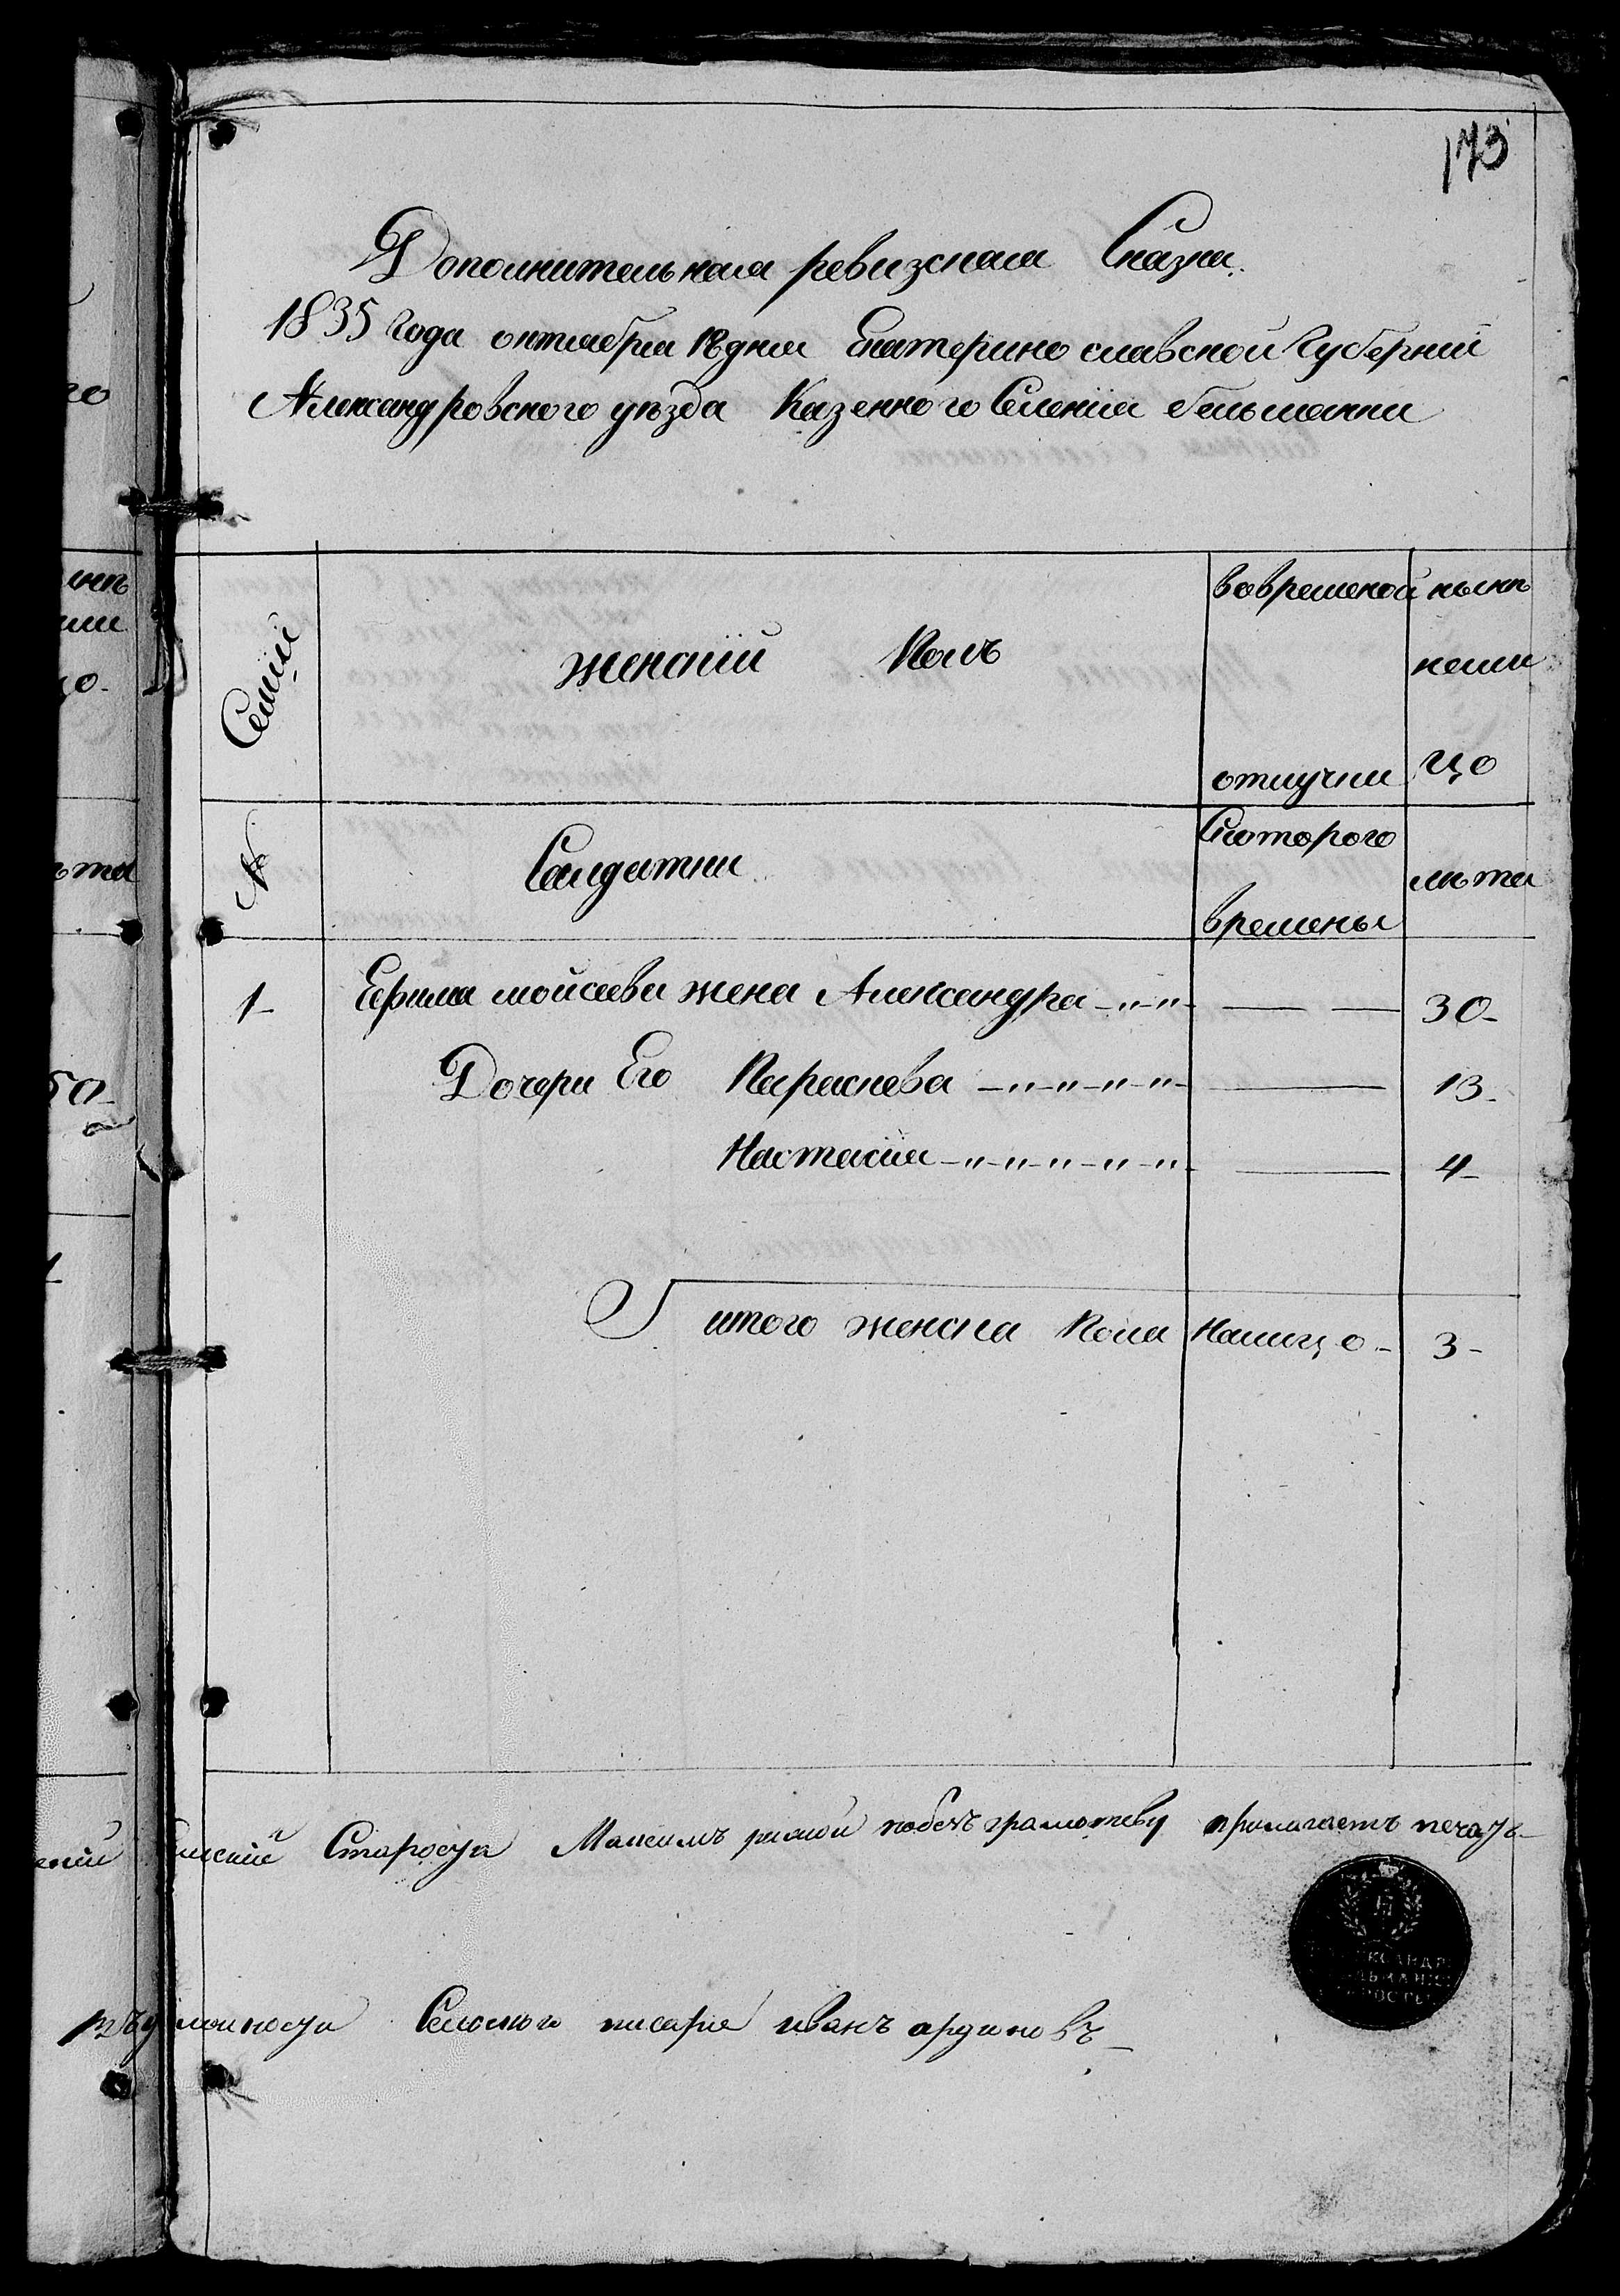 173
Дополнительная ревизская Сказка.
1835 года октиабря 18 дня Екатерино славской Губерніи
Александровского уѣзда Казенного Селенія бельманки
Семіи
женскій Полъ
вовременой
отлучки
нынѣ
нели
цо
№
Салдатки
Скоторого
времены
лѣта
1-
Ефима мойсеева жена Александра
30-
Дочери Его Параскева
13-
Настасія
4-
итого женска Пола Налицо-
3-
Староста Максимъ прилагаетъ печать
Селского писаря иванъ